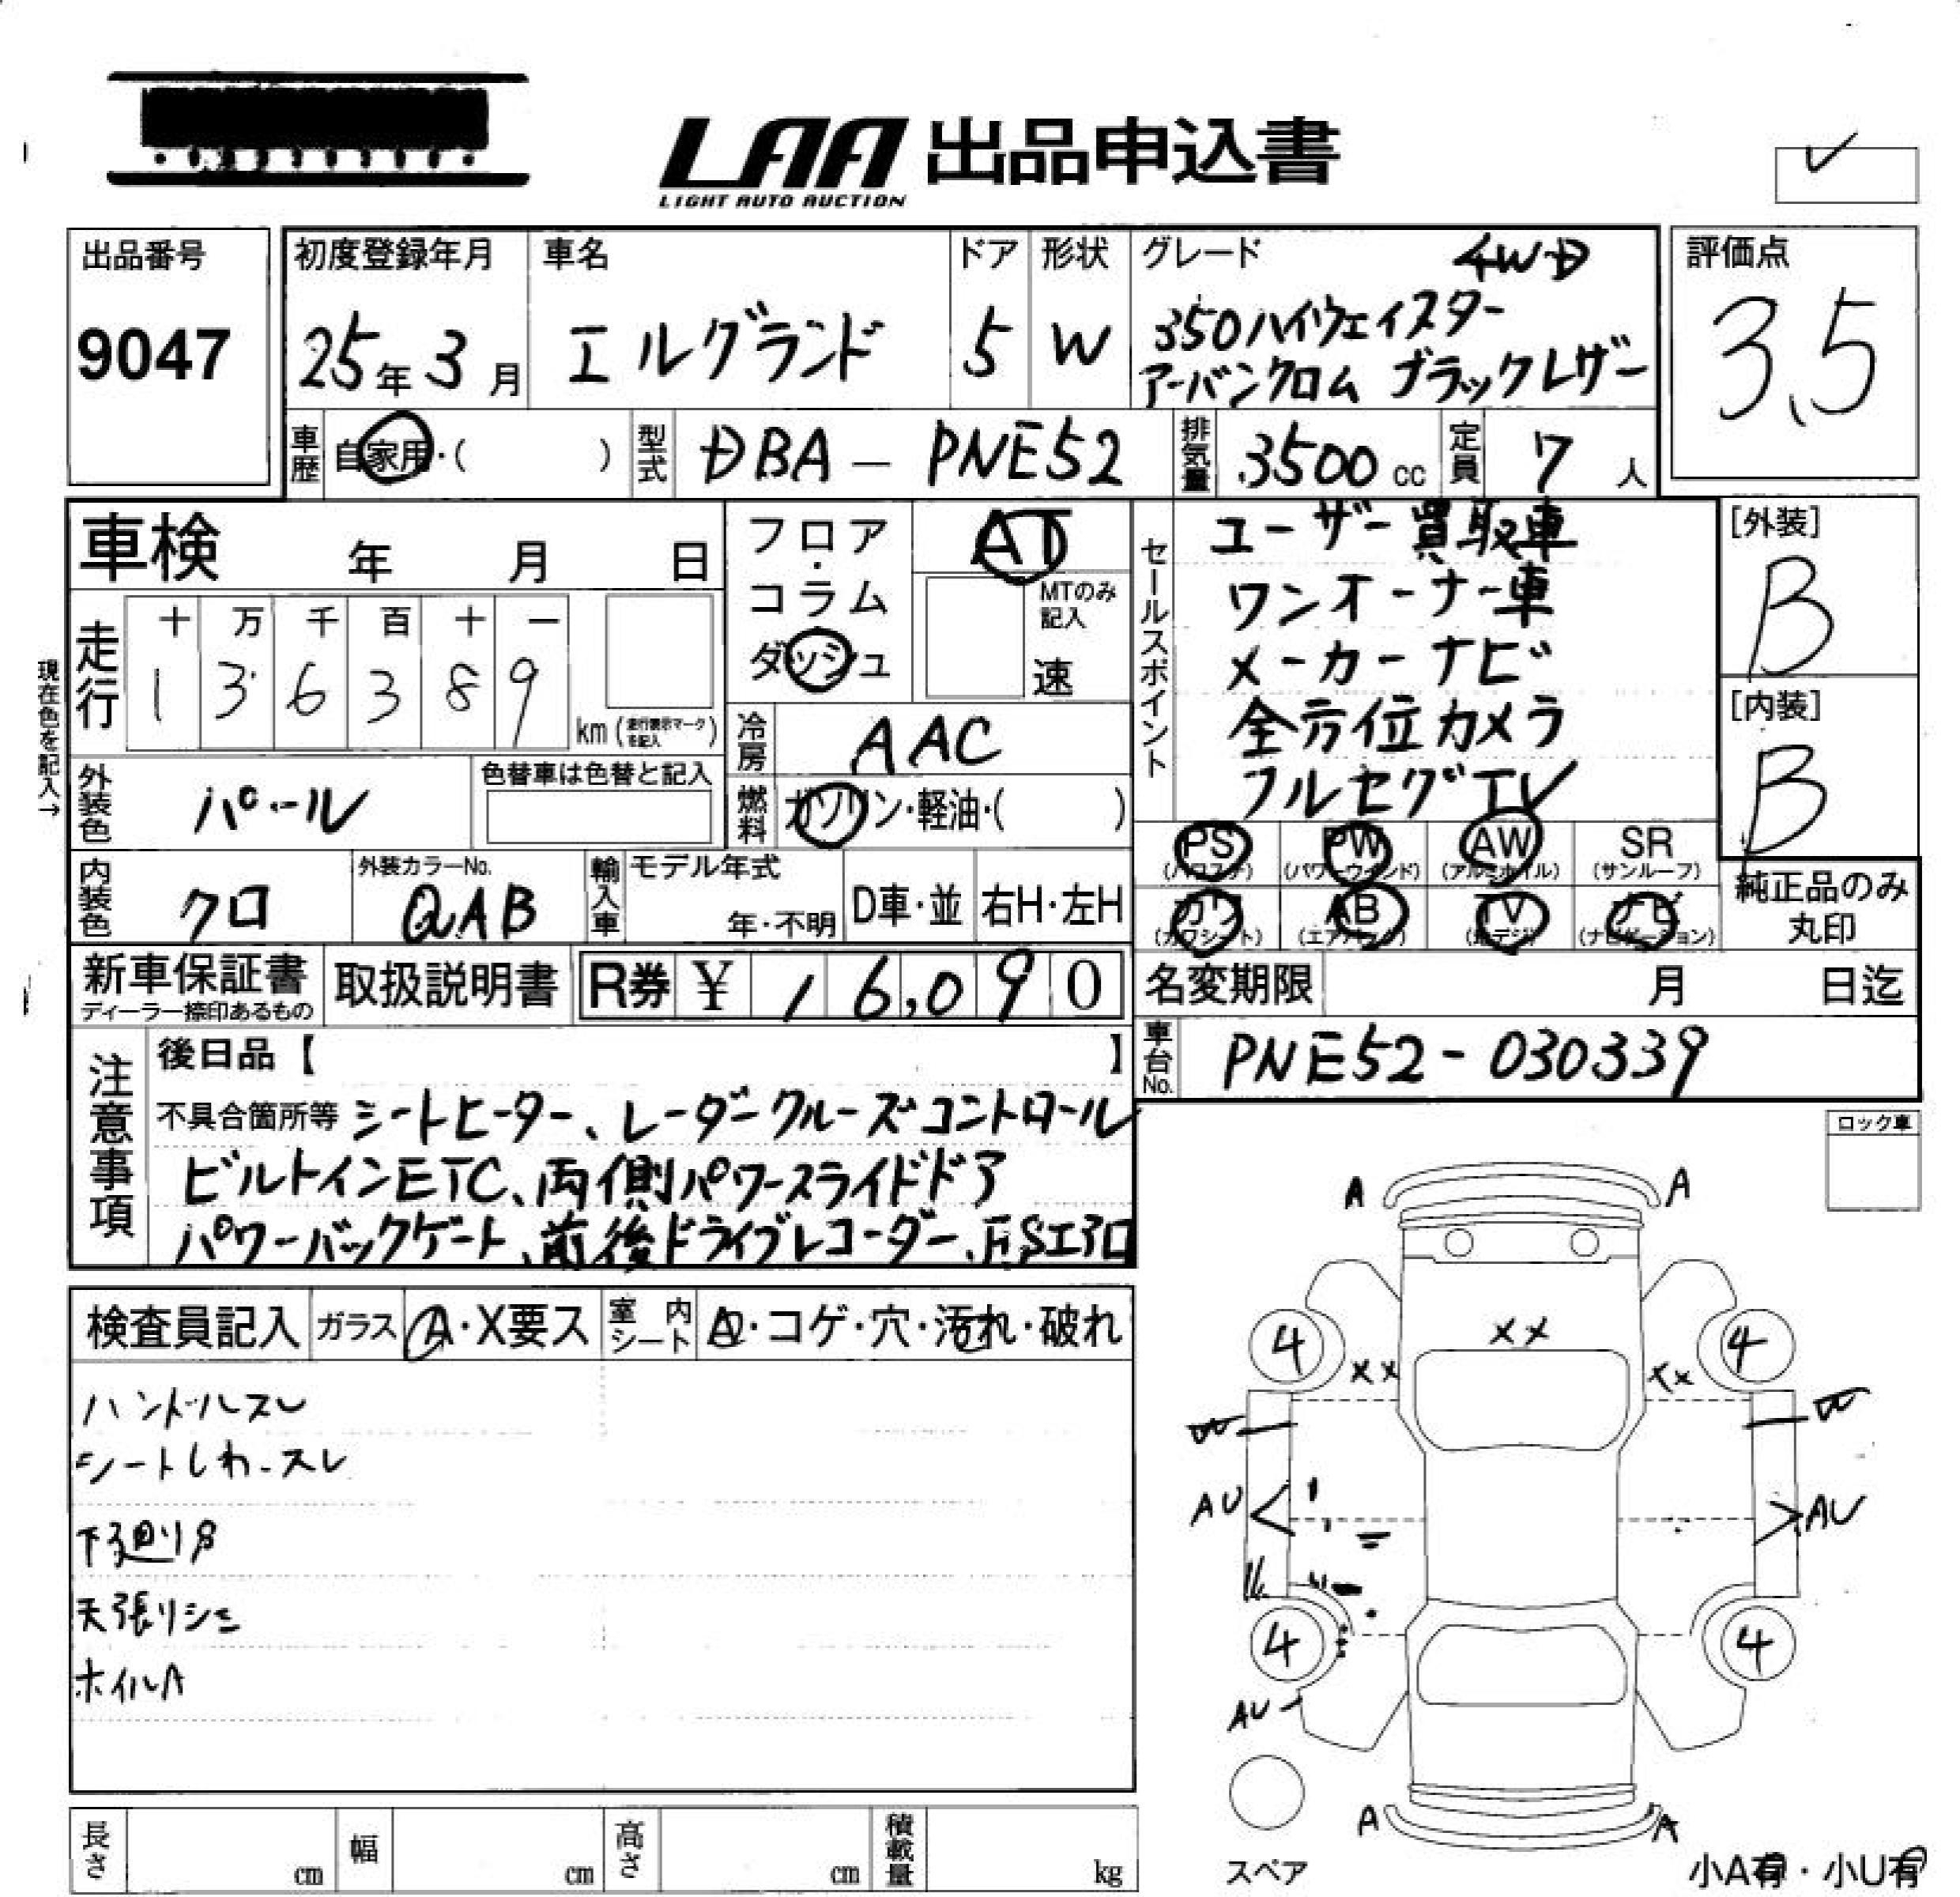 LAA 出品申込書
LIGHT AUTO AUCTION
出品番号
9047
初度登録年月
25年3月
車名
エルグランド
ドア
5
形状
W
グレード
4WD
350ハイウェイスター
アーバンクロム ブラックレザー
評価点
3.5
車歴
自家用・( )
型式
DBA-PNE52
排気量
3500cc
定員
7人
車検 年 月 日
フロア・コラム
ダッシュ
AT
MTのみ記入
速
セールスポイント
ユーザー買取車
ワンオーナー車
メーカーナビ
全方位カメラ
フルセグTV
[外装]
B
[内装]
B
現在色を記入→
走行
十 万 千 百 十 一
1 3 6 3 8 9
km(走行表示マークを記入)
冷房
AAC
外装色
パール
色替車は色替と記入
燃料
ガソリン・軽油・( )
PS PW AW SR
(パワステ) (パワーウインド) (アルミホイル) (サンルーフ)
カワ AB TV ナビ
(カワシート) (エアバック) (地デジ) (ナビゲーション)
純正品のみ
丸印
内装色
クロ
外装カラーNo.
QAB
輸入車
モデル年式
年・不明
D車・並
右H・左H
新車保証書
ディーラー捺印あるもの
取扱説明書
R券 ¥ 16,090
名変期限 月 日迄
車台No.
PNE52-030339
注意事項
後日品【 】
不具合箇所等 シートヒーター、レーダークルーズコントロール
ビルトインETC、両側パワースライドドア
パワーバックゲート、前後ドライブレコーダー
ロック車
検査員記入
ガラス
A・X要ス
室内シート
・コゲ・穴・汚れ・破れ
ハンドルスレ
シートしわ・スレ
下廻りS
天張りシミ
ホイルA
A A
4 XX 4
XX XX
AU AU
4 4
AU
A A
スペア
小A有・小U有
長さ cm
幅 cm
高さ cm
積載量 kg